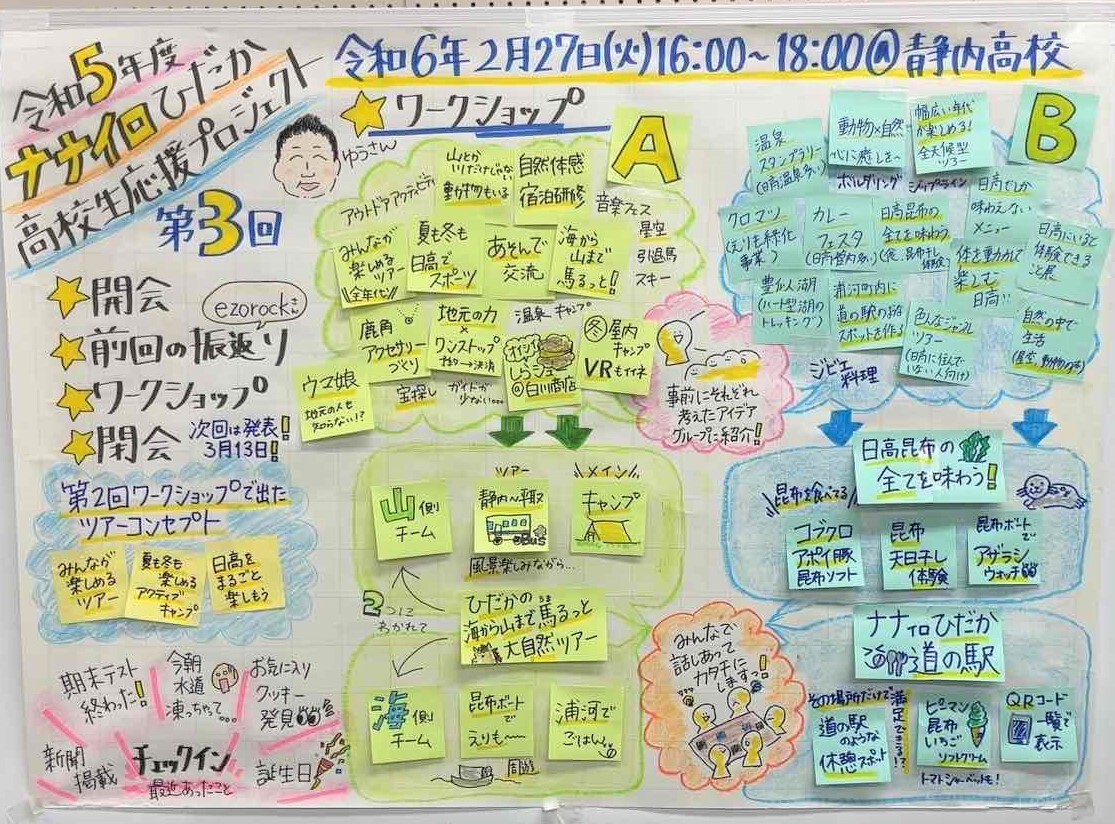 令和5年度
ナナイロひだか
高校生応援プロジェクト
第3回
令和6年2月27日(火)16:00～18:00@静内高校
ゆうさん
☆開会
ezorockさん
☆前回の振返り
☆ワークショップ
☆閉会
次回は発表!
3月13日!
第2回ワークショップで出た
ツアーコンセプト
みんなが
楽しめる
ツアー
夏も冬も
楽しめる
アクティブ
キャンプ
日高を
まるごと
楽しもう
期末テスト
終わった!
今朝
水道
凍っちゃって...
お気に入り
クッキー
発見
新聞
掲載
チェックイン
最近あったこと
誕生日
☆ワークショップ
A
山とか
川だけじゃない
動物もいる
自然体感
宿泊研修
アウトドアアクティビティ
音楽フェス
星空
引退馬
スキー
みんなが
楽しめるツアー
全年代
夏も冬も
日高で
スポーツ
あそんで
交流
海から
山まで
馬るっと!
鹿角
アクセサリー
づくり
地元の力
×
ワンストップ
温泉 キャンプ
しらシュー
@白川商店
冬
屋内
キャンプ
VRもイイネ
ウマ娘
地元の人も
知らない!?
宝探し
ガイドが
少ない...
事前にそれぞれ
考えたアイデア
グループに紹介!
山側
チーム
ツアー
静内～平取
BUS
メイン
キャンプ
風景楽しみながら...
2つに
わかれて
ひだかの
海から山まで馬るっと
大自然ツアー
海側
チーム
昆布ボートで
えりも～
浦河で
ごはん
B
温泉
スタンプラリー
(日高温泉多い)
動物×自然
心に癒しを～
幅広い年代
が楽しめる!
全天候型
ツアー
ボルダリング
ジップライン
クロマツ
(えりも緑化
事業)
カレー
フェスタ
(日高管内多い)
日高昆布の
全てを味わう
(食、昆布干し
体験)
日高でしか
味わえない
メニュー
体を動かして
楽しむ
日高!!
日高にいて
体験できる
こと展
豊似湖
(ハート型湖の
トレッキング)
浦河町内に
道の駅のような
スポットを作る
色んなジャンル
ツアー
(日高に住んで
いない人向け)
自然の中で
生活
ジビエ
料理
日高昆布の
全てを味わう!
昆布を食べてる
コブクロ
アポイ豚
昆布ソフト
昆布
天日干し
体験
昆布ボート
で
アザラシ
ウォッチ
みんなで
話しあって
カタチに
しますっ!
ナナイロひだか
道の駅
その場所だけで
満足できる!?
道の駅
のような
休憩スポット
ピーマン
昆布
いちご
ソフトクリーム
トマトシャーベットも!
QRコード
一覧で
表示